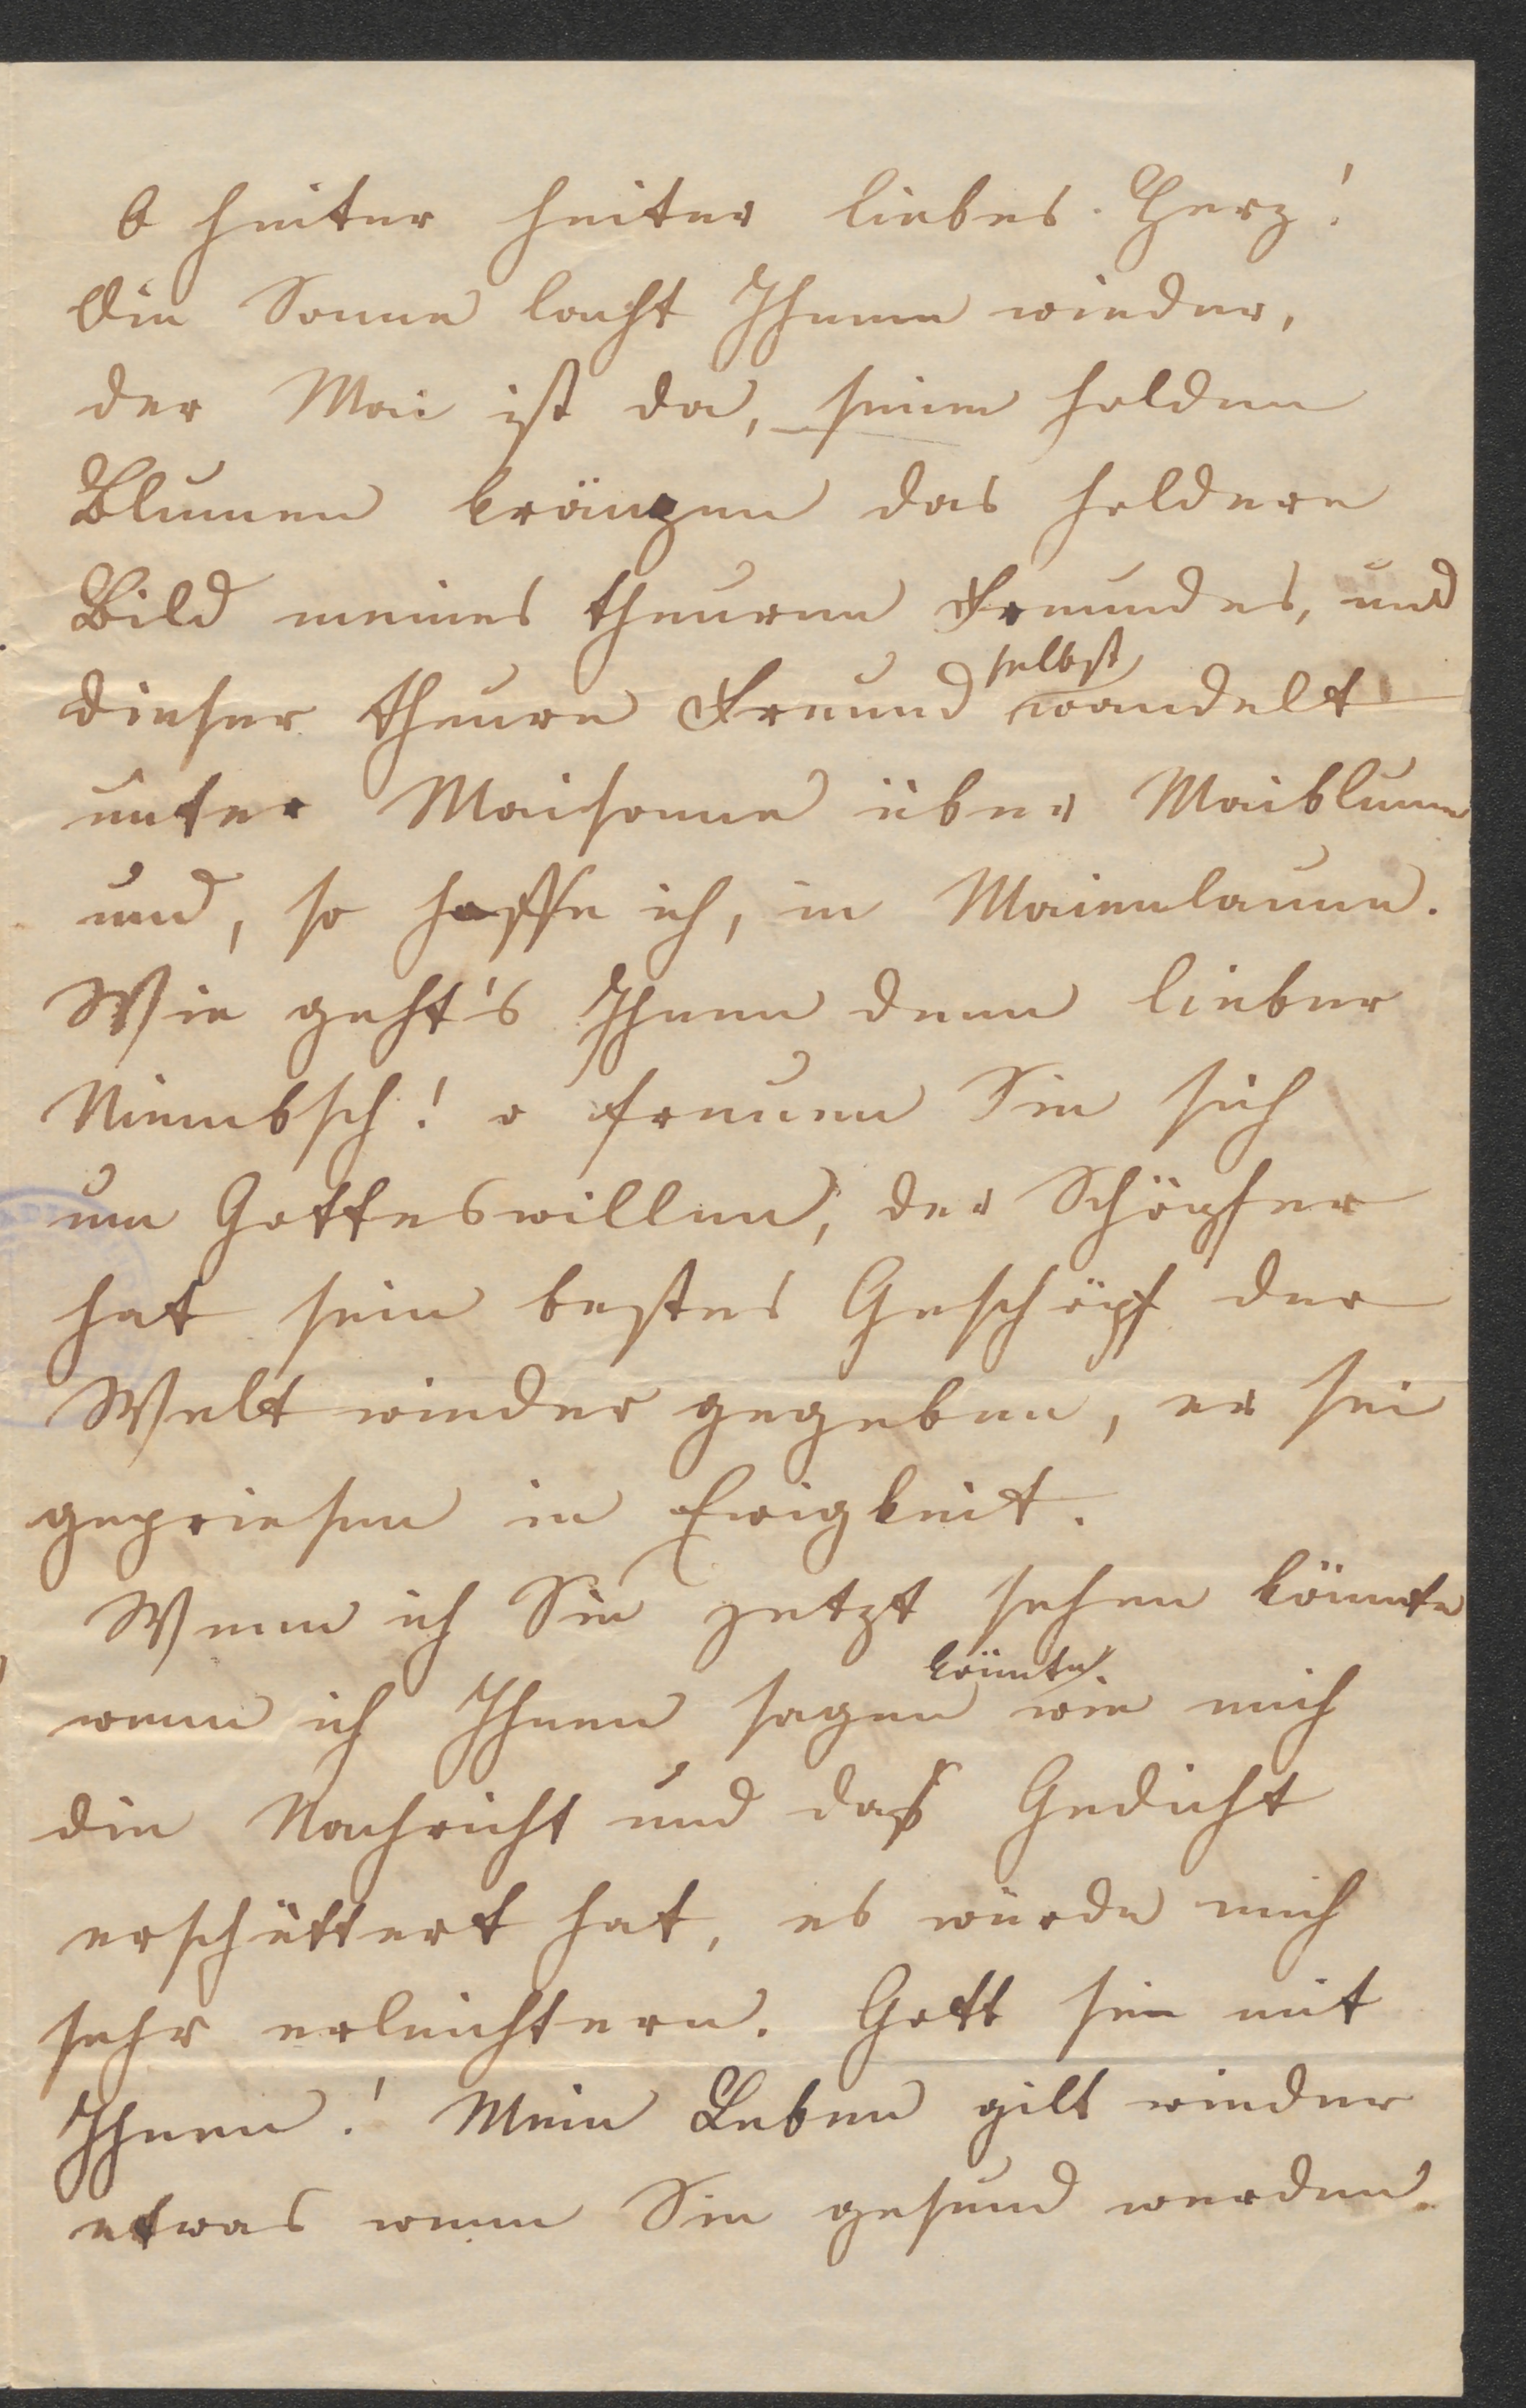 O heiter heiter liebes Herz!
Die Sonne lacht Ihnen wieder,
der Mai ist da, seine holden
Blumen kränzen das holdere
Bild meines theuren Freundes, und
dieser theure Freund selbst wandelt
unter Maisonne über Maiblumen
und, so hoffe ich, in Maienlaune.
Wie geht's Ihnen denn lieber
Niembsch! o freuen Sie sich
um Gotteswillen, der Schöpfer
hat sein bestes Geschöpf der
Welt wieder gegeben, er sei
gepriesen in Ewigkeit.
Wenn ich Sie jetzt sehen könnte
wenn ich Ihnen sagen könnte wie mich
die Nachricht und das Gedicht
erschüttert hat, es würde mich
sehr erleichtern. Gott sei mit
Ihnen! Mein Leben gilt wieder
etwas wenn Sie gesund werden.